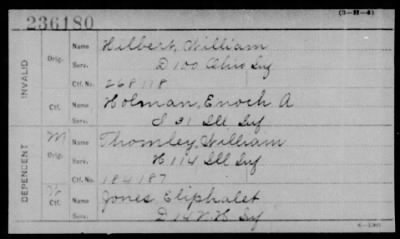 236180
(3-H-4)
INVALID
Orig.
Name Hilbert, William
Serv. D 100 Ohio Inf
Ctf. No. 268 118
Ctf.
Name Holman, Enoch A
Serv. I 31 Ill Inf
DEPENDENT
M
Orig.
Name Thomley, William
Serv. H 114 Ill Inf
Ctf. No. 184187
W
Ctf.
Name Jones, Eliphalet
Serv. D 14 N. H. Inf